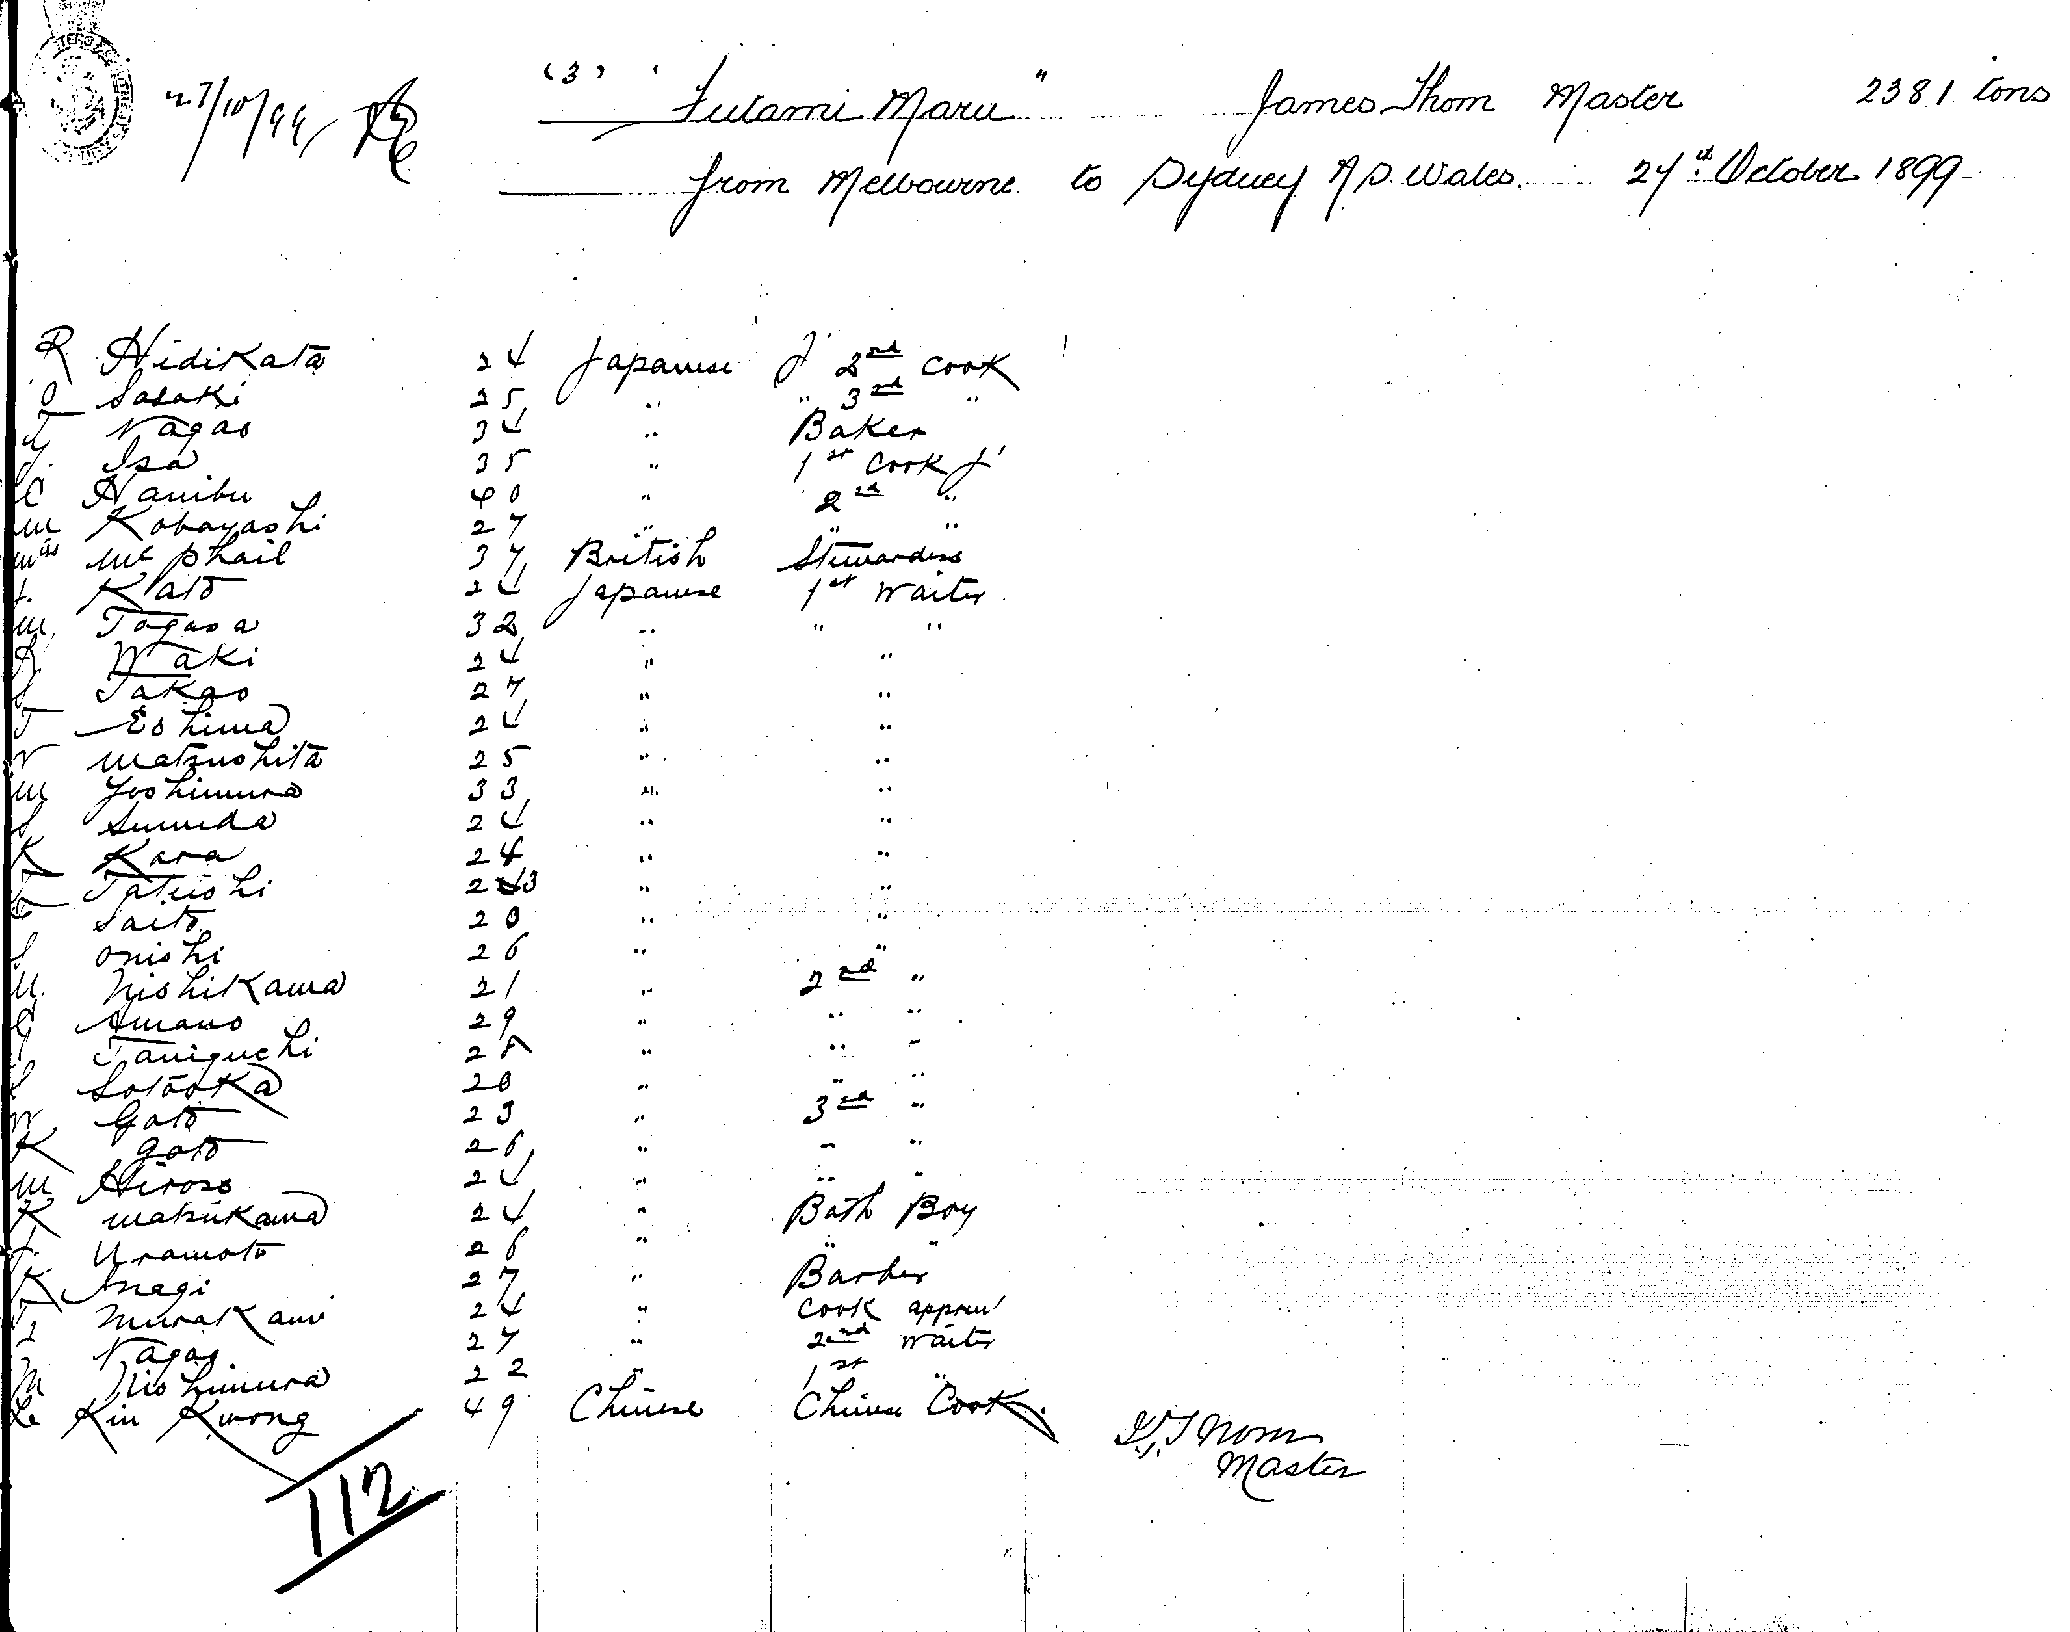 27/10/99
(3) "Futami Maru" James Thom Master 2381 tons
from Melbourne to Sydney N.S. Wales. 27th October 1899
R Hidikata 24 Japanese J' 2nd Cook
Sasaki 25 " " 3rd "
T Nagao 34 " Baker
Y. Isa 35 " 1st Cook J'
C Hanibu 40 " 2nd "
M Kobayashi 27 " " "
Mrs McPhail 37 British Stewardess
Kato 24 Japanese 1st Waiter
M. Togasa 32 " " "
Waki 24 " "
S Takao 27 " "
T Eshima 24 " "
N Matsushita 25 " "
M Yoshimura 33 " "
S Sumida 24 " "
K Kara 24 " "
Tateishi 23 " "
Saito 20 " "
S Onishi 26 " "
U. Nishikawa 21 " 2nd "
Amano 29 " " "
Taniguchi 28 " " "
S Sotooka 20 " " "
N Goto 23 " 3rd "
K Goto 26 " " "
M Hirose 24 " " "
K Matsukawa 24 " Bath Boy
Uramoto 26 " " "
K Inagi 27 " Barber
T Murakami 24 " Cook appren'
Nagao 27 " 2nd Waiter
M Nishimura 22 " 1st "
Le Kin Kwong 49 Chinese Chinese Cook.
J. Thom
Master
112